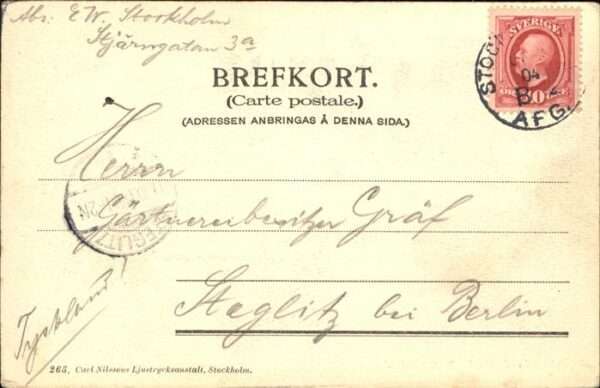 Abs: E W. Stockholm
Stjärngatan 3a
SVERIGE
04
B
AFG.
BREFKORT.
(Carte postale.)
(ADRESSEN ANBRINGAS Å DENNA SIDA.)
Herrn
Gärtnereibesitzer Gräf
Steglitz bei Berlin
Tyskland
265, Carl Nilssons Ljustrycksanstalt, Stockholm.